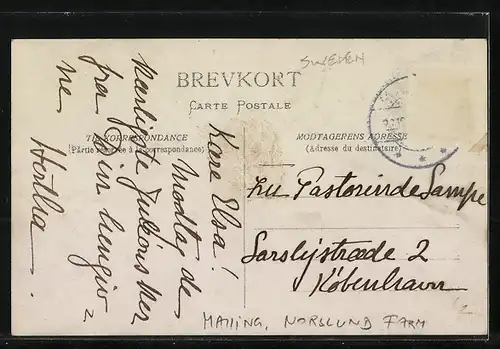 SWEDEN
BREVKORT
CARTE POSTALE
TIL KORRESPONDANCE
(Partie réservée à la correspondance)
MODTAGERENS ADRESSE
(Adresse du destinataire)
Kære Elsa!
Modtag de
kærligste Juleønsker
fra Din hengivne
Hertha
Pastorinde Lampe
2
København
MALLING, NORSLUND FARM